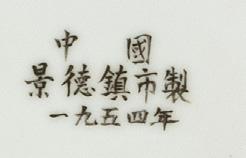 中國
景德鎮市製
一九五四年